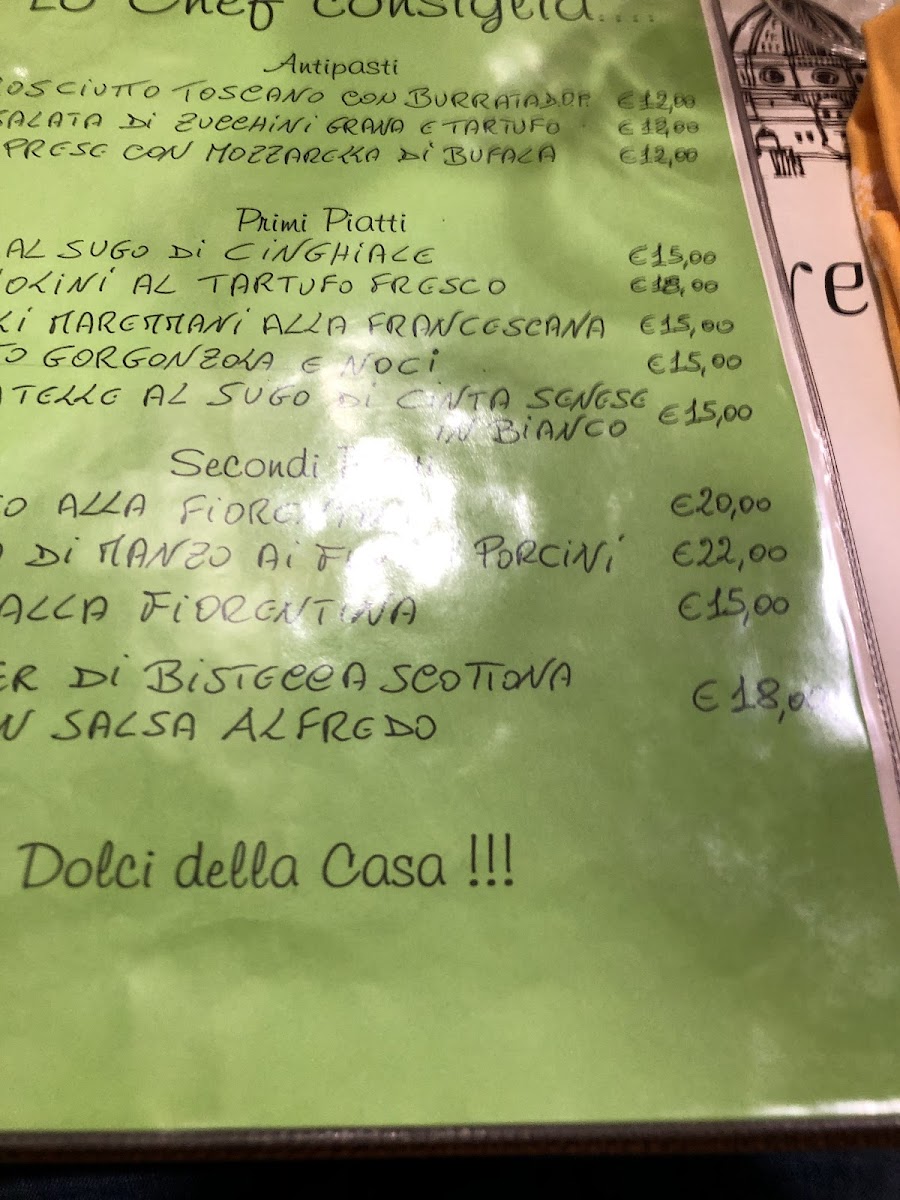 Lo Chef consiglia....
Antipasti
ROSCIUTTO TOSCANO CON BURRATA DOP €12,00
SALATA DI ZUCCHINI GRANA E TARTUFO €12,00
PRESE CON MOZZARELLA DI BUFALA €12,00
Primi Piatti
AL SUGO DI CINGHIALE €15,00
OLINI AL TARTUFO FRESCO €18,00
LI MAREMMANI ALLA FRANCESCANA €15,00
TO GORGONZOLA E NOCI €15,00
ATELLE AL SUGO DI CINTA SENESE €15,00
IN BIANCO
Secondi
O ALLA €20,00
DI MANZO AI PORCINI €22,00
ALLA FIORENTINA €15,00
ER DI BISTECCA SCOTTONA €18,00
N SALSA ALFREDO
Dolci della Casa !!!
re